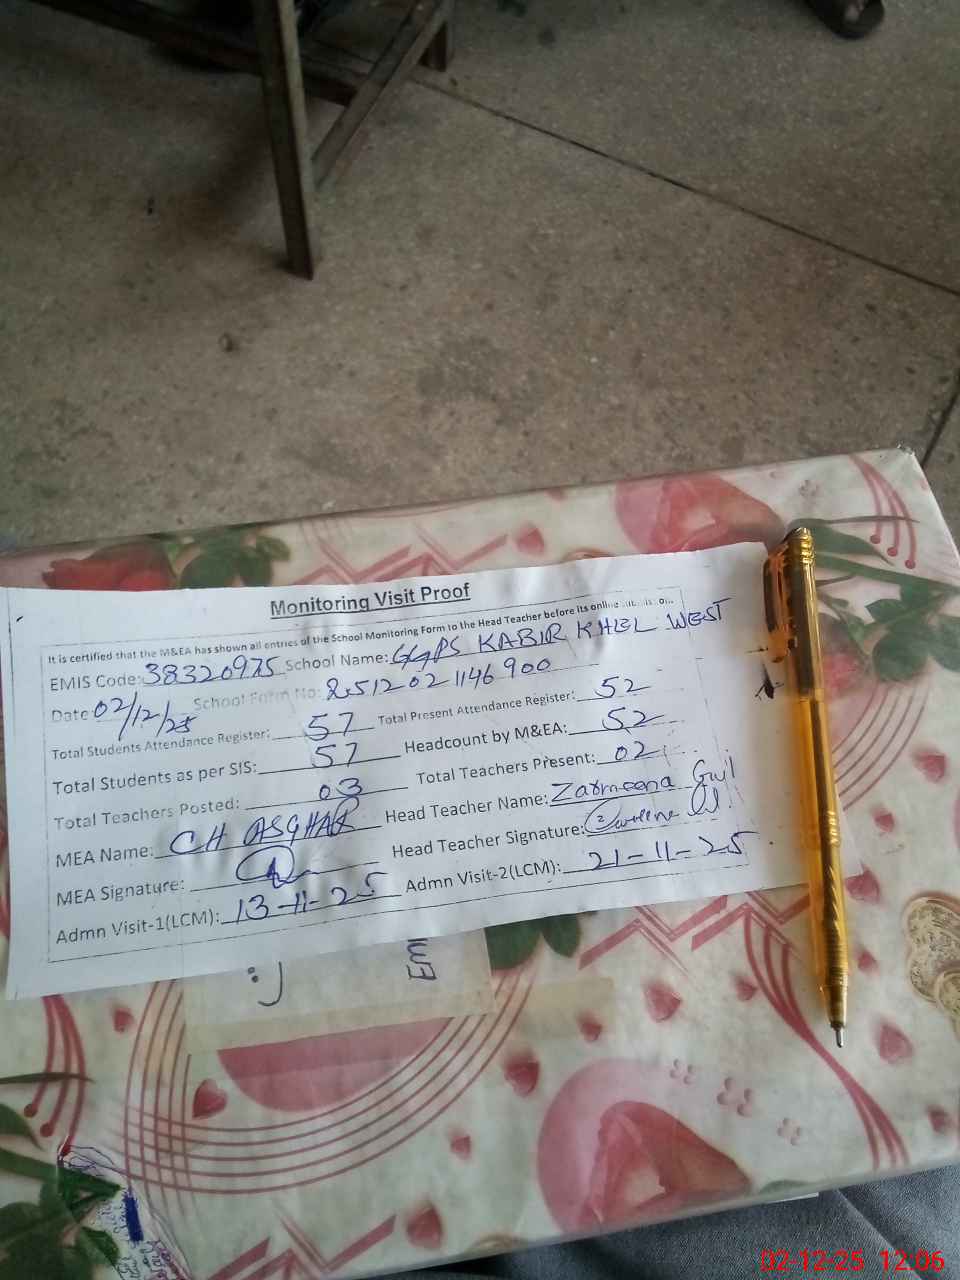 Monitoring Visit Proof
It is certified that the M&EA has shown all entries of the School Monitoring Form to the Head Teacher before its online
EMIS Code: 38320975 School Name: GGPS KABIR KHEL WEST
Date 02/12/25 School Form No: 2512021146900
Total Students Attendance Register: 57 Total Present Attendance Register: 52
Total Students as per SIS: 57 Headcount by M&EA: 52
Total Teachers Posted: 03 Total Teachers Present: 02
MEA Name: CH ASGHAR Head Teacher Name: Zarmeena Gul
MEA Signature: Head Teacher Signature:
Admn Visit-1(LCM): 13-11-25 Admn Visit-2(LCM): 21-11-25
Em
02-12-25 12:06